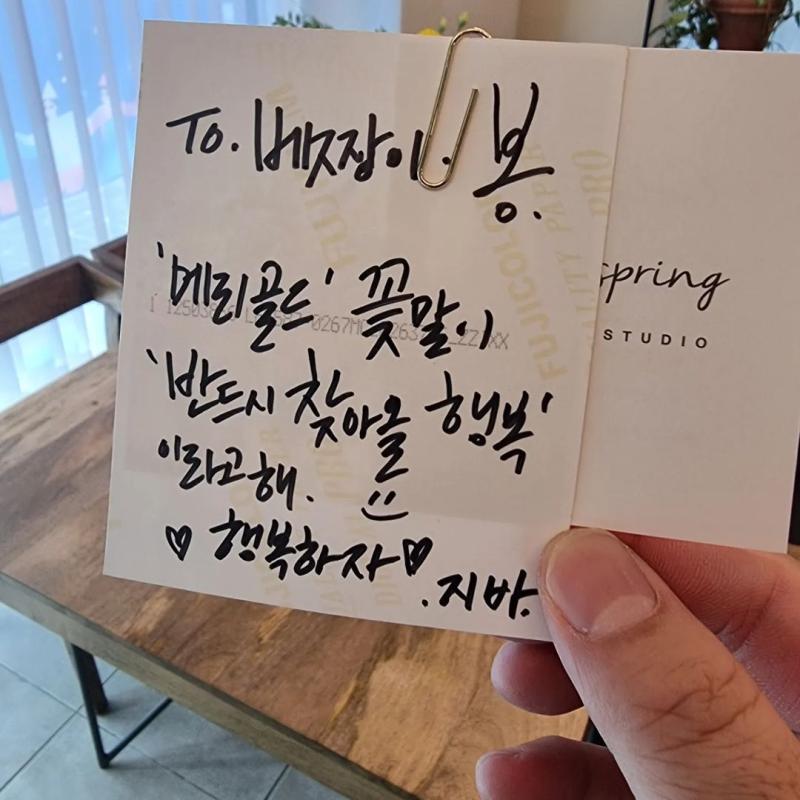 To. 베짱이. 봉.
'메리골드' 꽃말이
'반드시 찾아올 행복'
이라고 해.
♡ 행복하자 ♡
. 지바.
spring
STUDIO
FUJICOLOR